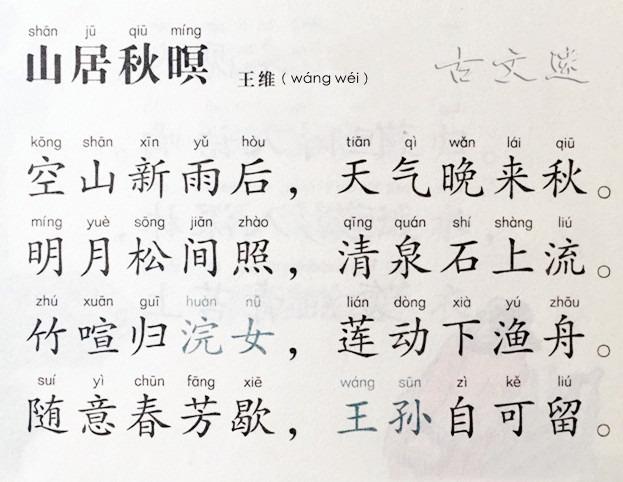 shān jū qiū míng
山居秋暝 王维（wáng wéi） 古文
kōng shān xīn yǔ hòu tiān qì wǎn lái qiū
空山新雨后，天气晚来秋。
míng yuè sōng jiān zhào qīng quán shí shàng liú
明月松间照，清泉石上流。
zhú xuān guī huàn nǚ lián dòng xià yú zhōu
竹喧归浣女，莲动下渔舟。
suí yì chūn fāng xiē wáng sūn zì kě liú
随意春芳歇，王孙自可留。